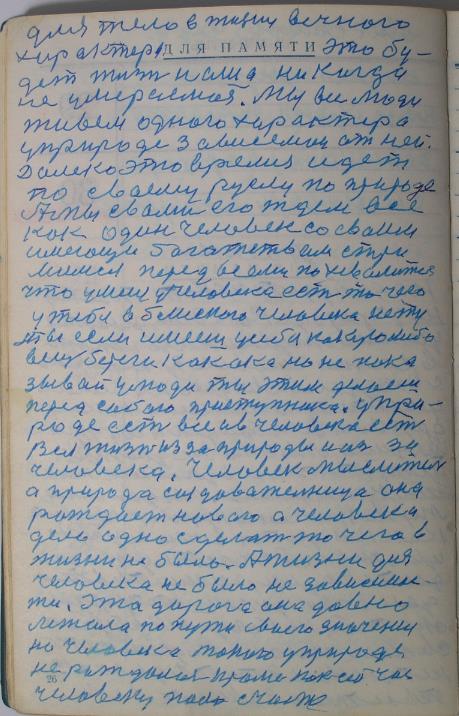 для тело в жизни вечного
характера ДЛЯ ПАМЯТИ это бу-
дет жизн наша никогда
не умераемая. Мы все люди
живем одного характера
у природе зависемии от ней.
Далеко это время идет
по своему руслу по природе
А мы свами его ждем все
как один человек со своим
имеющим богатством стри
мимся перед всеми похвалится
что у меня человека есть то чего
у тебя земского человека нету
ты если имееш у себя какую либо
вещ береги как ока но не пока
зывай у люди ты этим делаеш
перед собою приступника. У при-
роде есть все а в человека есть
Вся жизн из за природы и из за
человека. Человек мыслител
а природа создователница она
рождает нового а человека
дело одно сделат то чего в
жизни не было. А жизни для
человека не было не зависимо-
ти. Эта дорога она давно
лежала по пути своего значения
но человека такого у природе
не рождался прямо как сейчас
26
человеку надо счастя